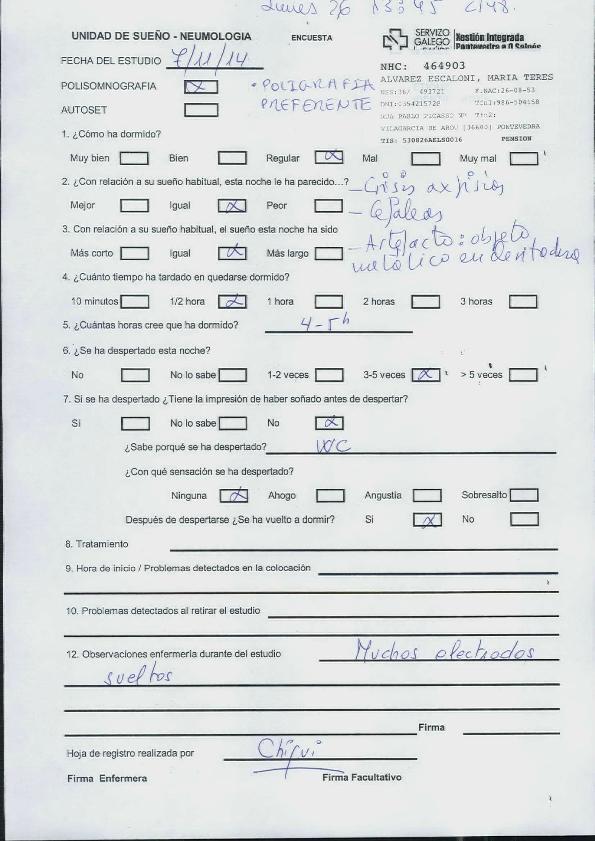 Lunes 26 13:45
UNIDAD DE SUEÑO - NEUMOLOGIA ENCUESTA SERVIZO GALEGO Xestión Integrada Pontevedra e O Salnés
FECHA DEL ESTUDIO 7/11/14
NHC: 464903
POLISOMNOGRAFIA X • POLIGRAFIA PREFERENTE
ALVAREZ ESCALONI, MARIA TERES
F.NAC:26-08-53
AUTOSET
VILAGARCIA DE AROU [36600] PONTEVEDRA
TIS: 530826AELS0016 PENSION
1. ¿Cómo ha dormido?
Muy bien Bien Regular X Mal Muy mal
2. ¿Con relación a su sueño habitual, esta noche le ha parecido...?
Mejor Igual X Peor
- Cefaleas
3. Con relación a su sueño habitual, el sueño esta noche ha sido
- Artefacto: objeto
Más corto Igual X Más largo
metálico en dentadura
4. ¿Cuánto tiempo ha tardado en quedarse dormido?
10 minutos 1/2 hora X 1 hora 2 horas 3 horas
5. ¿Cuántas horas cree que ha dormido? 4-5h
6. ¿Se ha despertado esta noche?
No No lo sabe 1-2 veces 3-5 veces X > 5 veces
7. Si se ha despertado ¿Tiene la impresión de haber soñado antes de despertar?
Si No lo sabe No X
¿Sabe porqué se ha despertado? WC
¿Con qué sensación se ha despertado?
Ninguna X Ahogo Angustia Sobresalto
Después de despertarse ¿Se ha vuelto a dormir? Si X No
8. Tratamiento
9. Hora de inicio / Problemas detectados en la colocación
10. Problemas detectados al retirar el estudio
12. Observaciones enfermería durante del estudio Muchos electrodos
sueltos
Firma
Hoja de registro realizada por Chiqui
Firma Enfermera Firma Facultativo